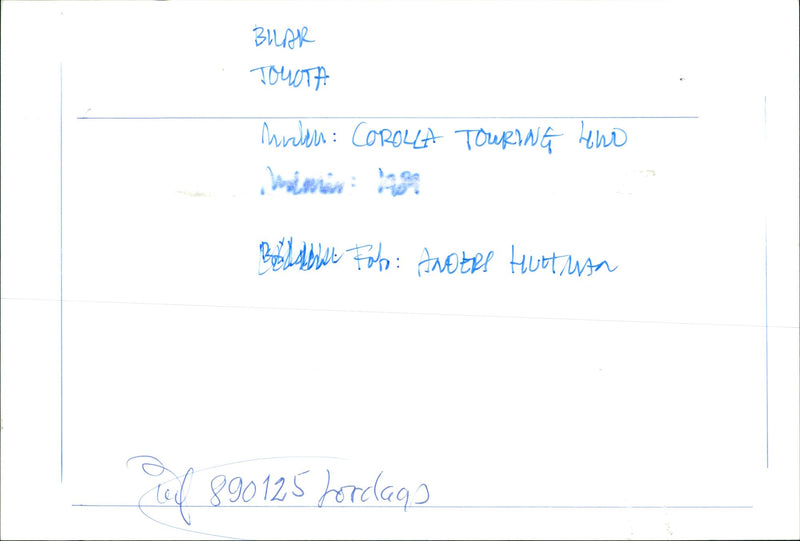 BILAR
TOYOTA
Modell: COROLLA TOURING 4WD
Foto: ANDERS HULTMAN
890125 Lördags